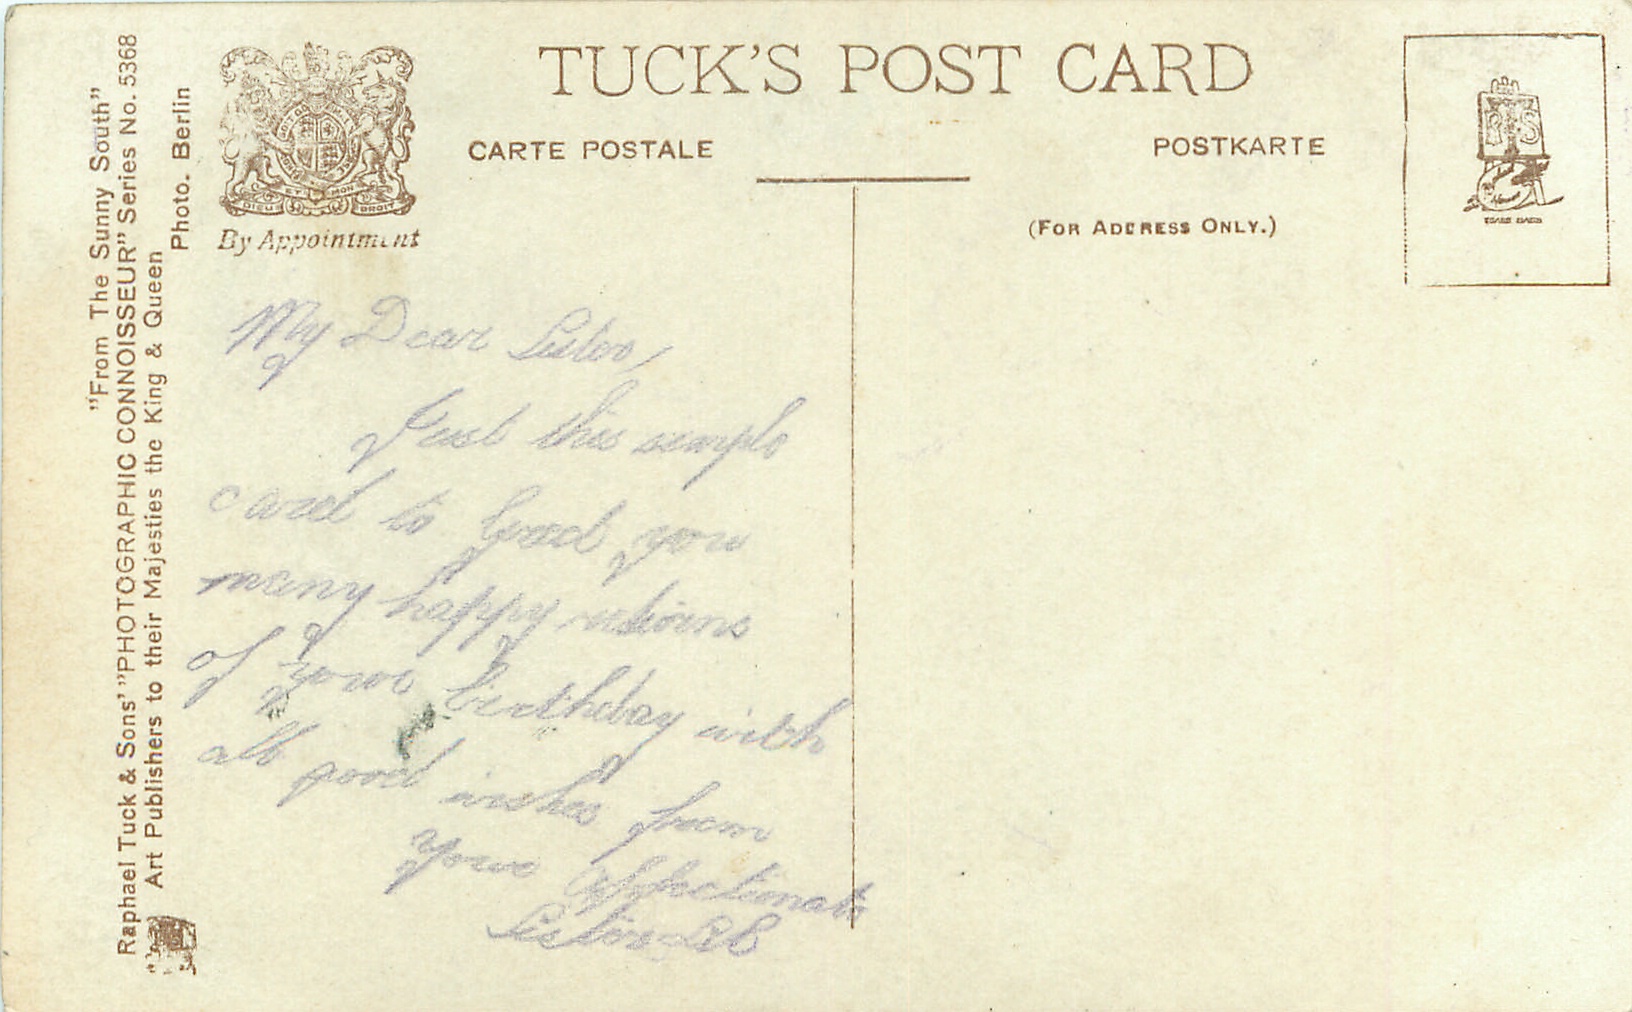 TUCK'S POST CARD
CARTE POSTALE
POSTKARTE
(FOR ADDRESS ONLY.)
By Appointment
DIEU ET MON DROIT
"From The Sunny South"
Raphael Tuck & Sons' "PHOTOGRAPHIC CONNOISSEUR" Series No. 5368
Art Publishers to their Majesties the King & Queen
Photo. Berlin
TRADE MARK
My Dear Sister,
Just this simple
card to you
many happy returns
of your birthday with
all good wishes from
Your Affectionate
Sister